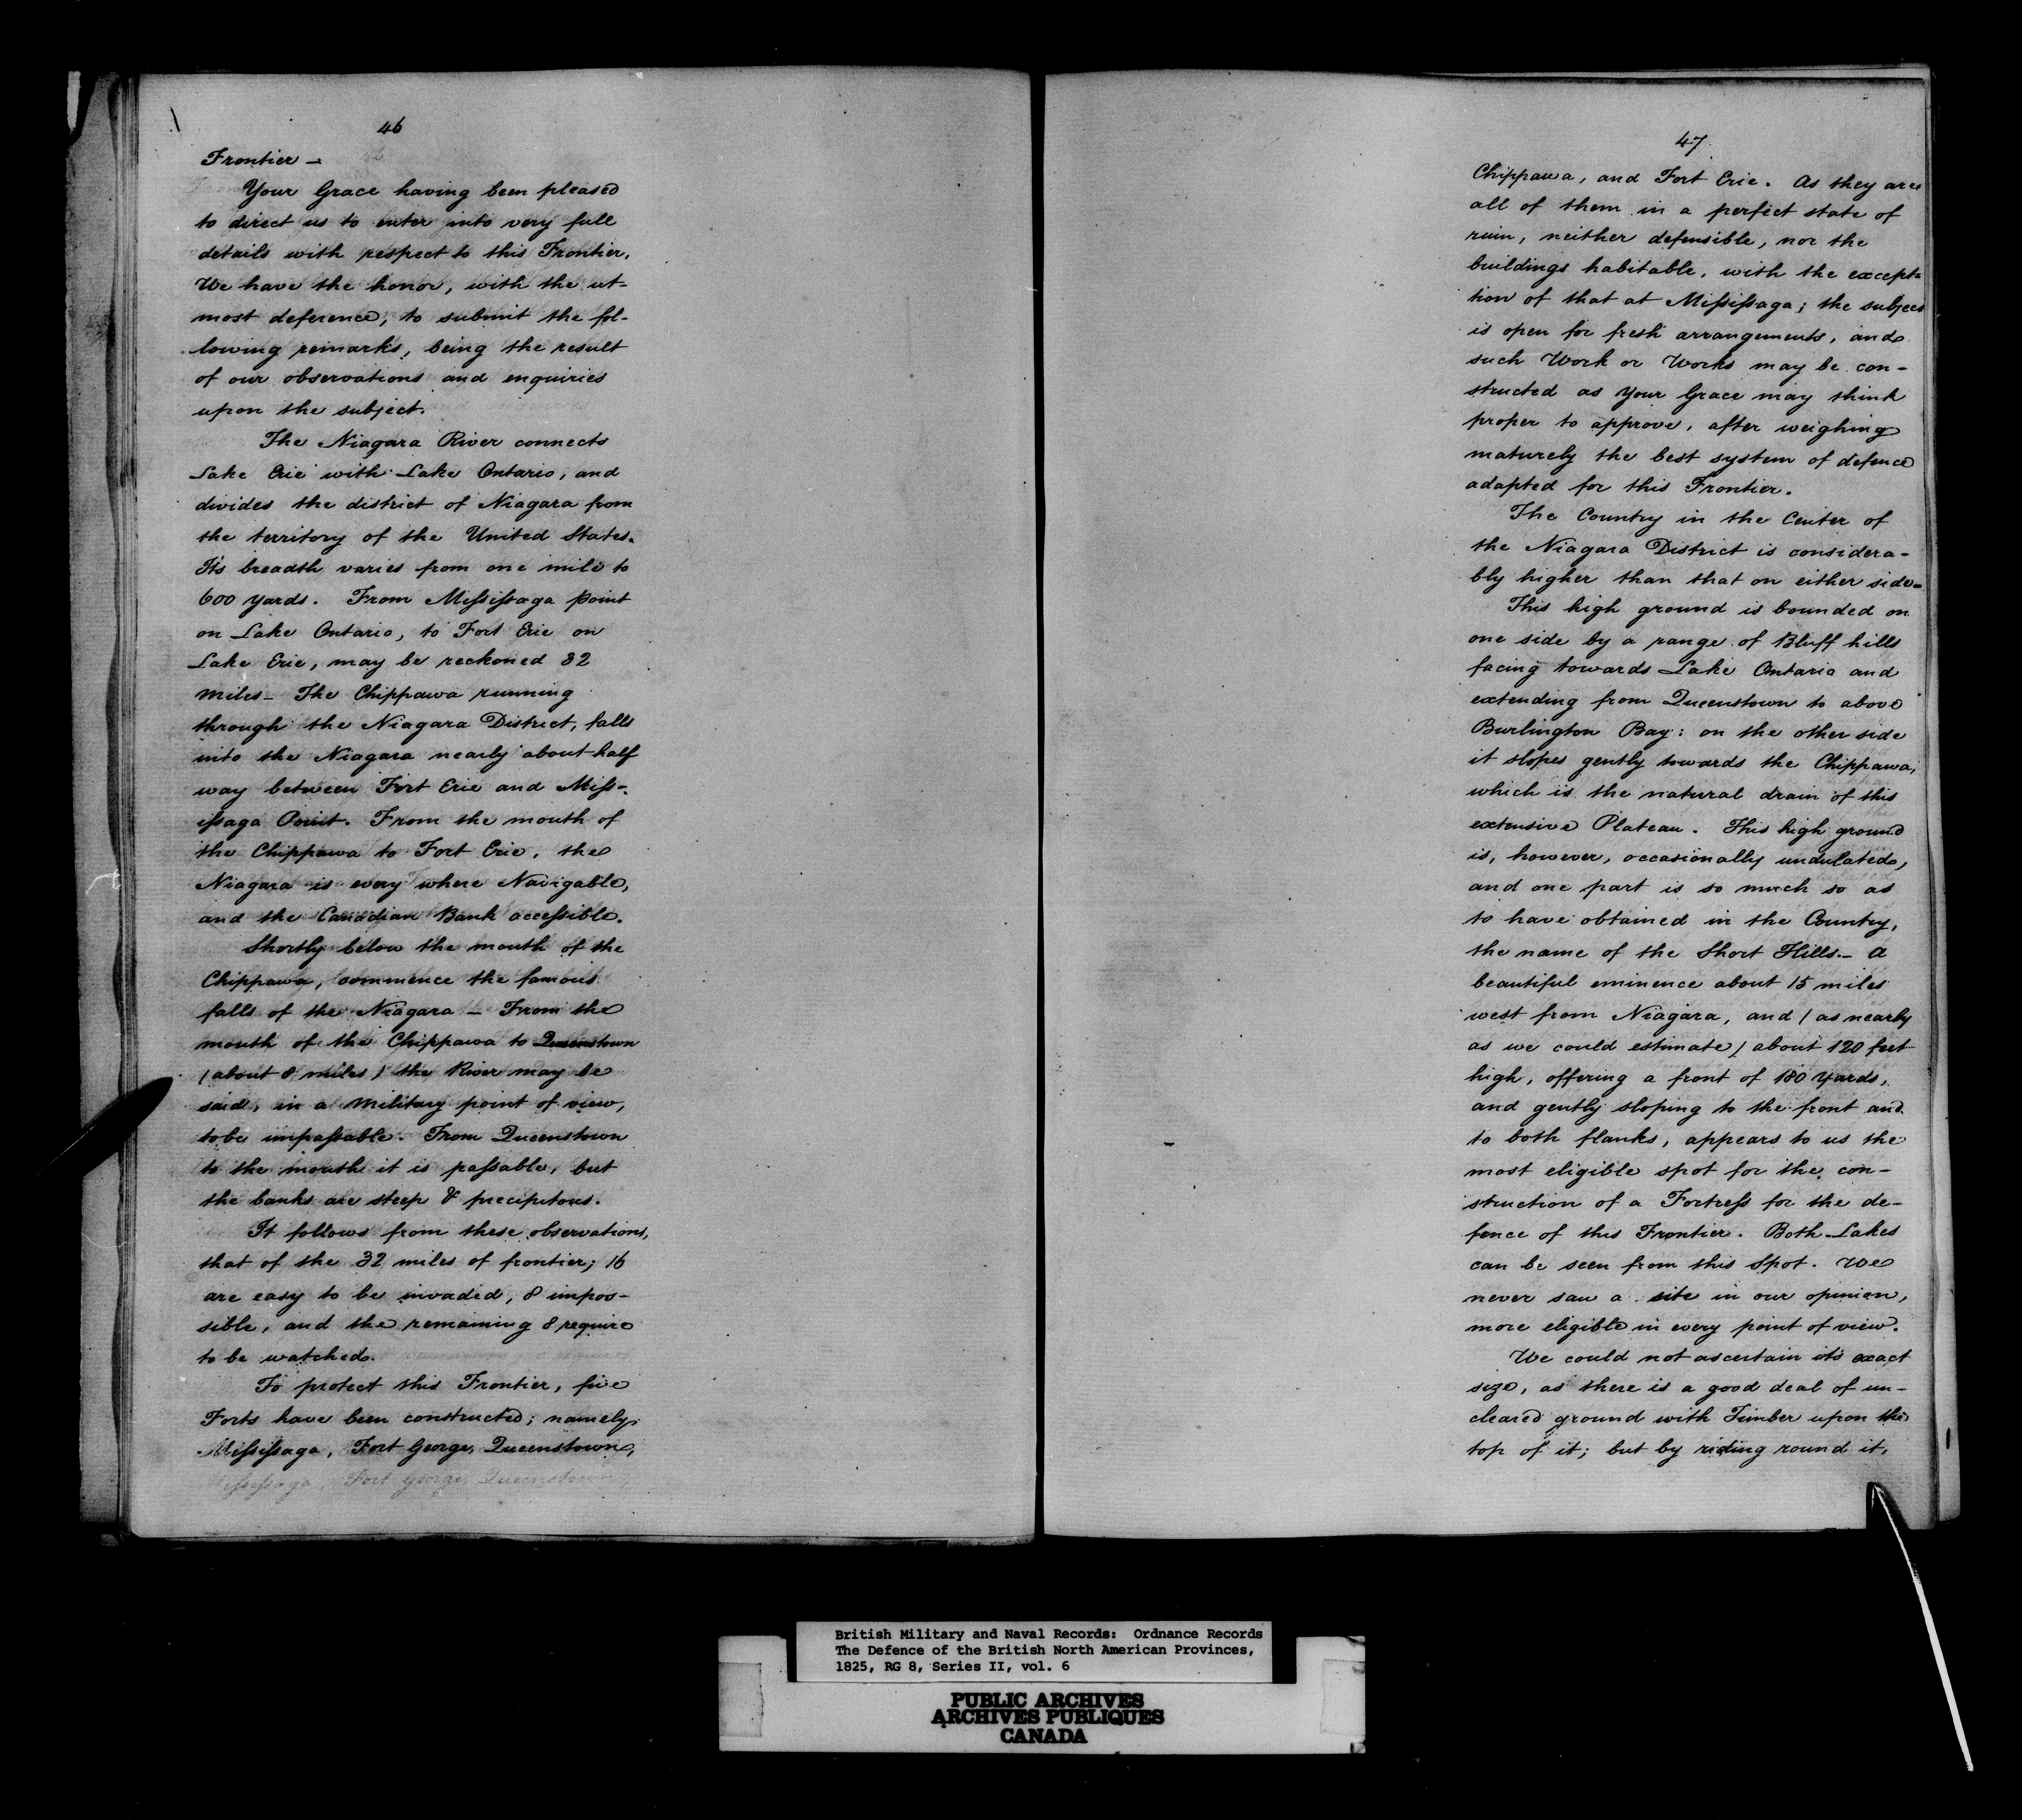 46
Frontier —
Your Grace having been pleased
to direct us to enter into very full
details with respect to this Frontier,
We have the honor, with the ut-
most deference, to submit the fol-
lowing remarks, being the result
of our observations and enquiries
upon the subject.
The Niagara River connects
Lake Erie with Lake Ontario, and
divides the district of Niagara from
the territory of the United States.
It's breadth varies from one mile to
600 yards. From Missisaga point
on Lake Ontario, to Fort Erie on
Lake Erie, may be reckoned 32
miles — The Chippawa running
through the Niagara District, falls
into the Niagara nearly about half
way between Fort Erie and Miss-
issaga Point. From the mouth of
the Chippawa to Fort Erie, the
Niagara is every where Navigable,
and the Canadian Bank accessible.
Shortly below the mouth of the
Chippawa, commence the famous
falls of the Niagara — From the
mouth of the Chippawa to Queenstown
(about 8 miles) the River may be
said, in a Military point of view,
to be impassable. From Queenstown
to the mouth it is passable, but
the banks are steep & precipitous.
It follows from these observations,
that of the 32 miles of frontier; 16
are easy to be invaded, 8 impos-
sible, and the remaining 8 require
to be watched.
To protect this Frontier, five
Forts have been constructed; namely,
Missisaga, Fort George, Queenstown,
47
Chippawa, and Fort Erie. As they are
all of them in a perfect state of
ruin, neither defensible, nor the
buildings habitable, with the excep-
tion of that at Missisaga; the subject
is open for fresh arrangements, and
such Work or Works may be con-
structed as Your Grace may think
proper to approve, after weighing
maturely the best system of defence
adapted for this Frontier.
The Country in the Center of
the Niagara District is considera-
bly higher than that on either side.
This high ground is bounded on
one side by a range of Bluff hills
facing towards Lake Ontario and
extending from Queenstown to above
Burlington Bay: on the other side
it slopes gently towards the Chippawa,
which is the natural drain of this
extensive Plateau. This high ground
is, however, occasionally undulated,
and one part is so much so as
to have obtained in the Country,
the name of the Short Hills. — A
beautiful eminence about 15 miles
west from Niagara, and (as nearly
as we could estimate) about 120 feet
high, offering a front of 180 Yards,
and gently sloping to the front and
to both flanks, appears to us the
most eligible spot for the con-
struction of a Fortress for the de-
fence of this Frontier. Both Lakes
can be seen from this Spot. We
never saw a site in our opinion,
more eligible in every point of view.
We could not ascertain it's exact
size, as there is a good deal of un-
cleared ground with Timber upon the
top of it; but by riding round it,
British Military and Naval Records: Ordnance Records
The Defence of the British North American Provinces,
1825, RG 8, Series II, vol. 6
PUBLIC ARCHIVES
ARCHIVES PUBLIQUES
CANADA